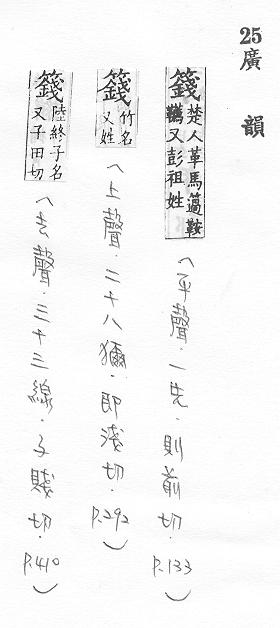 25 廣韻
籛 楚人革馬鞍
韉又彭祖姓
（平聲．一先．則前切．P.133）
籛 竹名
又姓
（上聲．二十八獮．即淺切．P.292）
籛 陸終子名
又子田切
（去聲．三十三線．子賤切．P.410）